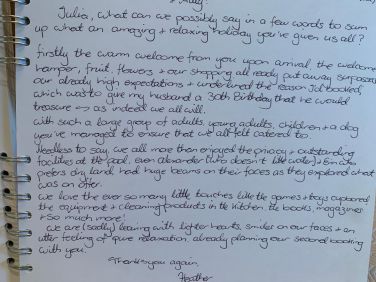 Julia, what can we possibly say in a few words to sum
up what an amazing + relaxing holiday you've given us all?
firstly the warm welcome from you upon arrival, the welcome
hamper, fruit, flowers + our shopping all ready put away surpassed
our already high expectations + underlined the reason I'd booked,
which was to give my husband a 30th Birthday that he would
treasure → as indeed we all will.
with such a large group of adults, young adults, children + a dog
you've managed to ensure that we all felt catered to.
Needless to say, we all more than enjoyed the privacy + outstanding
facilities at the pool, even Alexander (who doesn't like water) +
prefers dry land, had huge beams on their faces as they explored what
was on offer.
We love the ever so many little touches like the games + toys
the equipment + cleaning products in the kitchen, the books, magazines
+ so much more!
We are (sadly) leaving with lighter hearts, smiles on our faces + an
utter feeling of pure relaxation, already planning our second booking
with you.
Thank you again,
Heather